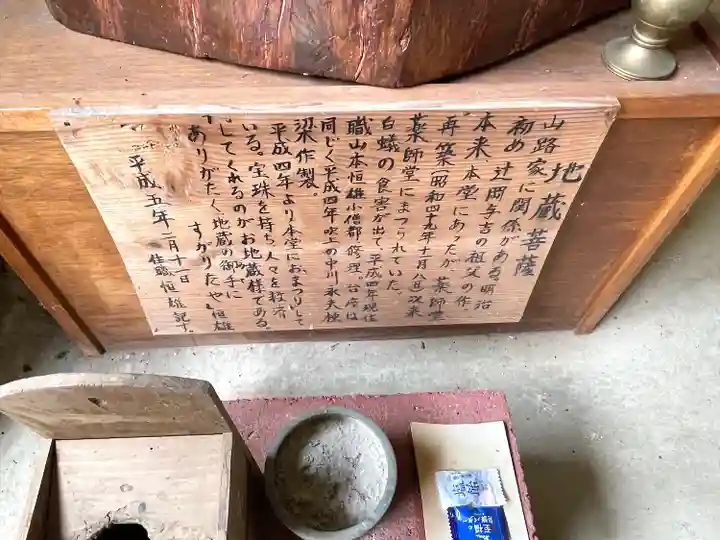 地蔵菩薩
山路家に関係がある。明治
初め、辻岡与吉の祖父の作、
本来本堂にあったが、薬師堂
再築(昭和四十九年十月八日)以来
薬師堂にまつられていた。
白蟻の食害が出て、平成四年現住
職山本恒雄小僧都修理。台座は
同じく平成四年吹上の中川永夫棟
梁作製。
平成四年より本堂におまつりして
いる。宝珠を持ち人々を救済
してくれるのがお地蔵様である。
ありがたく地蔵の御手に
すがりたや 恒雄
平成五年二月十一日
住職恒雄記す。